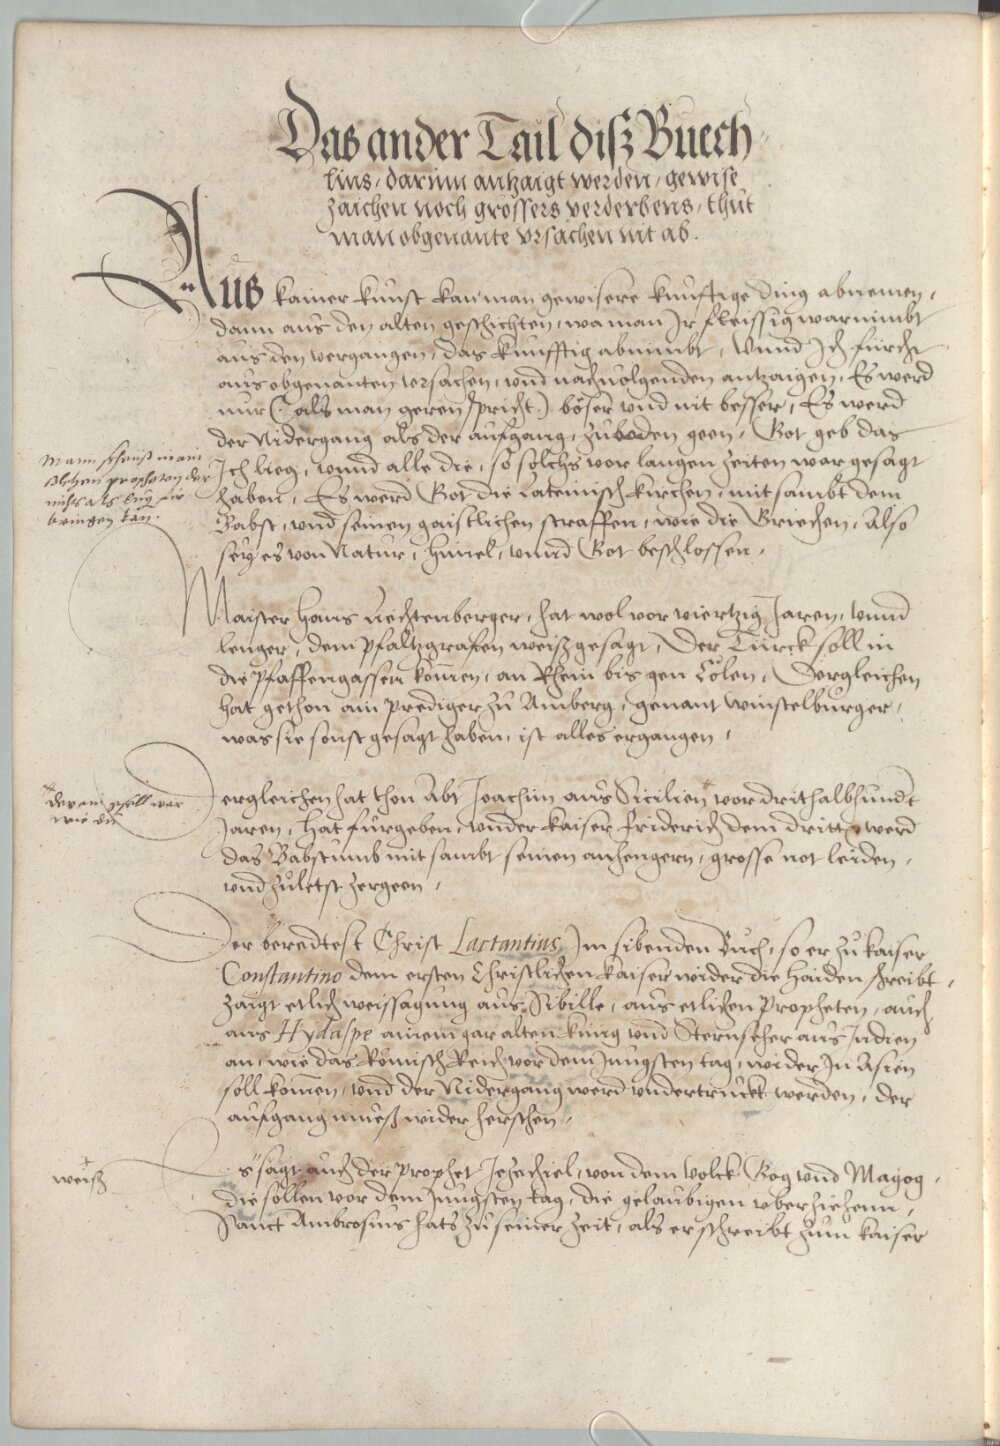 Das ander Tail diß Buech
lins, darinn antzaigt werden, gewise
zaichen noch grössers verderbens, thut
man obgenante ursachen nit ab.
Aus kainer kunst kan man gewisere kunftige ding abnemen,
dann aus den alten geschichten, wa man Ir fleissig warnimbt
aus den vergangen, das kunfftig abnimbt, Vnnd Ich fürcht
aus obgenanten vrsachen, vnd nachuolgenden antzaigen, Es werd
nur (: als man geren spricht.) böser vnd nit besser, Es werd
der Nidergang als der aufgang, zuboden geen, Got geb das
Ich lieg, vnnd alle die, so solchs vor langen zeiten war gesagt
haben, Es werd Got die Lateinisch kirchen, mit sambt dem
Babst, vnd seinen gaistlichen straffen, wie die Griechen, Also
sey es von Natur, himel, vnnd Got beschlossen.
Man
propheten der
nichts als lug fur
bringen kan.
Maister Hans Liechtenberger, hat wol vor viertzig Jaren, vnnd
lenger, dem Pfaltzgrafen weißgesagt, Der Türck soll in
die Pfaffengassen komen, an Rhein bis gen Cölen, Dergleichen
hat gethon ain prediger zu Amberg, genant Winstelburger,
was sie sonst gesagt haben, ist alles ergangen,
Dergleichen hat thon Abt Joachim aus Sicilien vor drithalbhundt
Jaren, hat furgeben, vnder kaiser friderich dem dritten werd
das Babstumb mit sambt seinen anhengern, grosse not leiden,
vnd zuletst zergeen,
der ein war
wie du
Der beredtest Christ Lactantius Im sibenden Buch, so er zu kaiser
Constantino dem ersten Christlichen kaiser wider die haiden schreibt,
zaigt etlich weissagung aus Sibille, aus etlichen Propheten, auch
aus Hydaspe ainem gar alten kunig vnd Sternseher aus Indien
an, wie das Römisch Reich vor dem Jungsten tag, wider In Asien
soll komen, vnd der Nidergang werd vndertruckt werden, der
aufgang mueß wider herschen,
Es sagt auch der prophet Jezechiel, von dem volck Gog vnd Magog,
die sollen vor dem Jungsten tag, die gelaubigen vberziehenn,
Sanct Ambrosius hats zu seiner zeit, als er schreibt zum kaiser
weiß